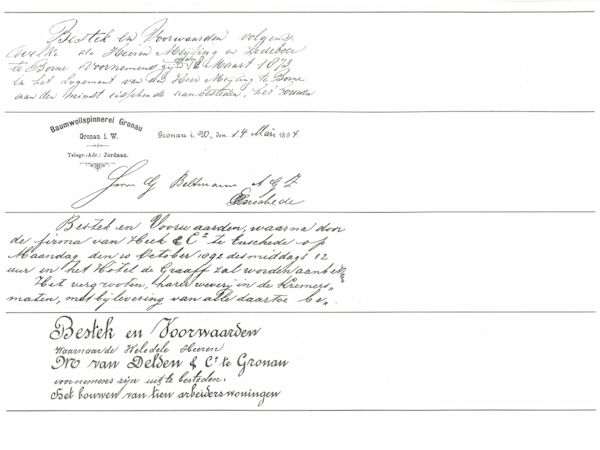 Bestek en Voorwaarden volgens
welke de Heeren Meijling en Ledeboer
te Borne voornemens zijn Maart 1873
in het Logement van den Heer Meijling te Borne
aan den minst eischende aantebesteden. het bouwen
Baumwollspinnerei Gronau
Gronau i. W.
Telegr.-Adr.: Jordaan.
Gronau i. W., den 14 Mai 1897
Herrn G Beltman A G Z
Enschede
Bestek en Voorwaarden, waarna door
de firma van Heek & Co te Enschede op
Maandag den 10 October 1892 des middags 12
uur in het Hotel de Graaff zal worden aanbe-
Het vergrooten, harer weverij in de Kremers-
maten, met bijlevering van alle daartoe be-
Bestek en Voorwaarden
Waarnaar de WelEdele Heeren
M van Delden & Co te Gronau
voornemens zijn uit te besteden.
Het bouwen van tien arbeiderswoningen